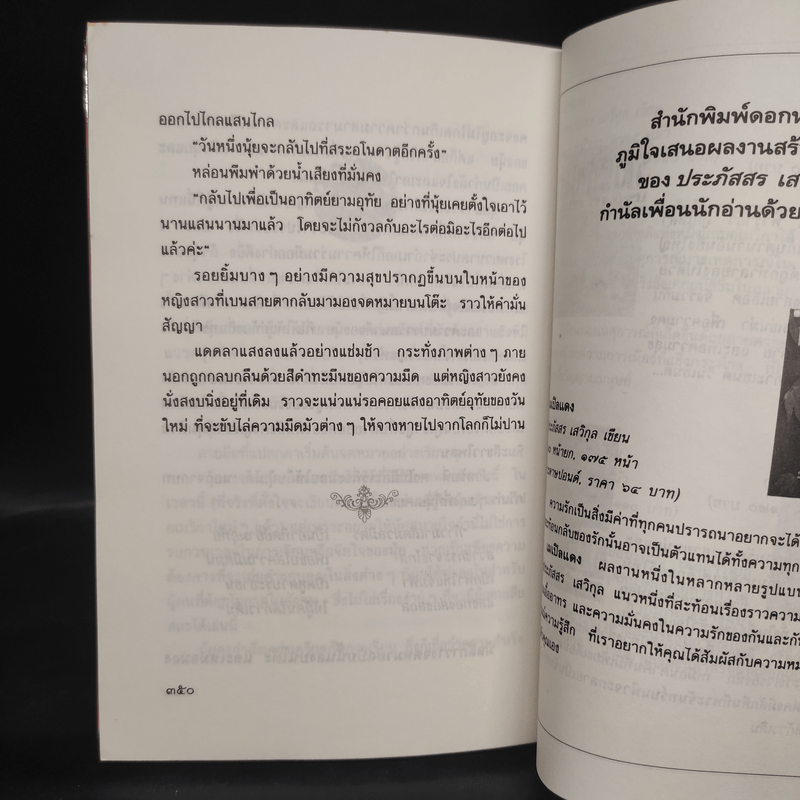 ออกไปไกลแสนไกล
“วันหนึ่งนุ้ยจะกลับไปที่สระอโนดาตอีกครั้ง”
หล่อนพึมพำด้วยน้ำเสียงที่มั่นคง
“กลับไปเพื่อเป็นอาทิตย์ยามอุทัย อย่างที่นุ้ยเคยตั้งใจเอาไว้
นานแสนนานมาแล้ว โดยจะไม่กังวลกับอะไรต่อมิอะไรอีกต่อไป
แล้วค่ะ”
รอยยิ้มบาง ๆ อย่างมีความสุขปรากฏขึ้นบนใบหน้าของ
หญิงสาวที่เบนสายตากลับมามองจดหมายบนโต๊ะ ราวให้คำมั่น
สัญญา
แดดลาแสงลงแล้วอย่างแช่มช้า กระทั่งภาพต่าง ๆ ภาย
นอกถูกกลบกลืนด้วยสีดำทะมึนของความมืด แต่หญิงสาวยังคง
นั่งสงบนิ่งอยู่ที่เดิม ราวจะแน่วแน่รอคอยแสงอาทิตย์อุทัยของวัน
ใหม่ ที่จะขับไล่ความมืดมัวต่าง ๆ ให้จางหายไปจากโลกก็ไม่ปาน
๓๕๐
สำนักพิมพ์ดอก
ภูมิใจเสนอผลงาน
ของ ประภัสสร
กำนัลเพื่อนนักอ่านด้วย
เป็ดแดง
เสวิกุล เขียน
หน้ายก, ๑๗๕ หน้า
ราคา ๖๔ บาท)
ความรักเป็นสิ่งมีค่าที่ทุกคนปรารถนาอยากจะได้
กลับของรักนั้นอาจเป็นตัวแทนได้ทั้งความทุก
เป็ดแดง ผลงานหนึ่งในหลากหลายรูปแบบ
เสวิกุล แนวหนึ่งที่สะท้อนเรื่องราวความ
และความมั่นคงในความรักของกันและกัน
ความรู้สึก ที่เราอยากให้คุณได้สัมผัสกับความ